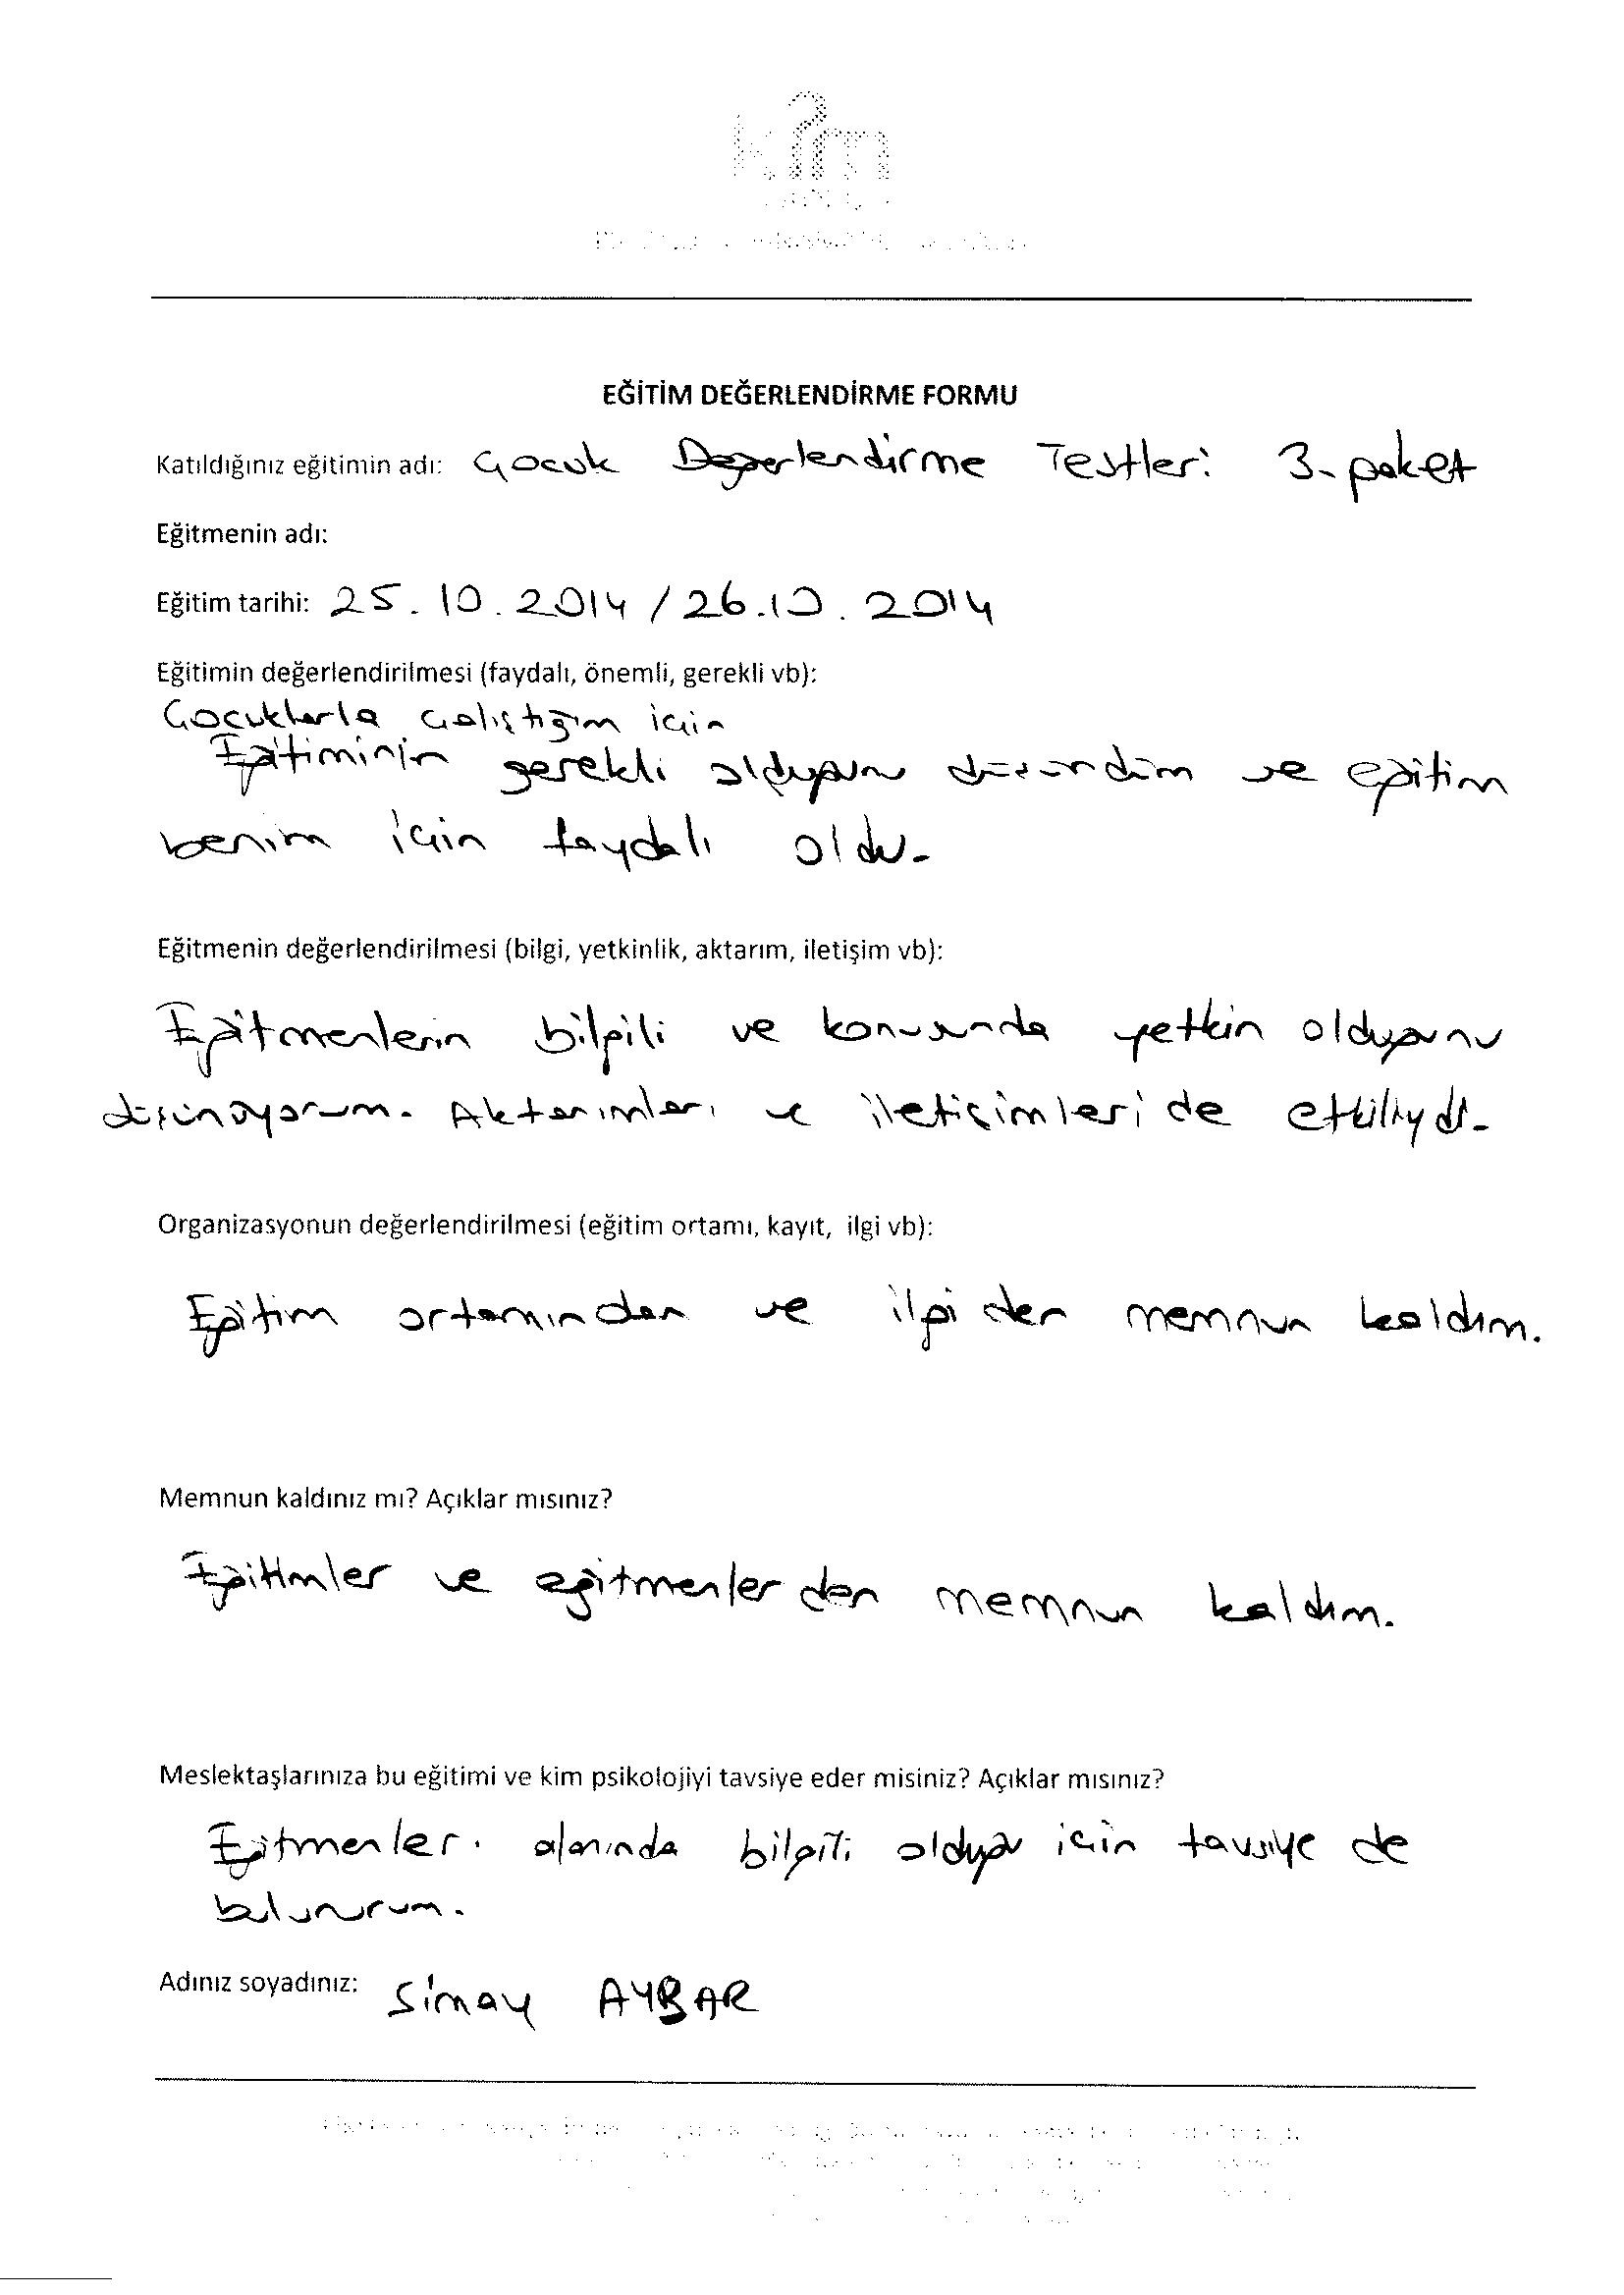 kim
EĞİTİM DEĞERLENDİRME FORMU
Katıldığınız eğitimin adı: Çocuk Değerlendirme Testleri 3. paket
Eğitmenin adı:
Eğitim tarihi: 25.10.2014 / 26.10.2014
Eğitimin değerlendirilmesi (faydalı, önemli, gerekli vb):
Çocuklarla çalıştığım için
Eğitiminin gerekli olduğunu düşündüm ve eğitim
benim için faydalı oldu.
Eğitmenin değerlendirilmesi (bilgi, yetkinlik, aktarım, iletişim vb):
Eğitmenlerin bilgili ve konusunda yetkin olduğunu
düşünüyorum. Aktarımları ve iletişimleri de etkiliydi.
Organizasyonun değerlendirilmesi (eğitim ortamı, kayıt, ilgi vb):
Eğitim ortamından ve ilgiden memnun kaldım.
Memnun kaldınız mı? Açıklar mısınız?
Eğitimler ve eğitmenlerden memnun kaldım.
Meslektaşlarınıza bu eğitimi ve kim psikolojiyi tavsiye eder misiniz? Açıklar mısınız?
Eğitmenler alanında bilgili olduğu için tavsiye de
bulunurum.
Adınız soyadınız: Simay AYBAR